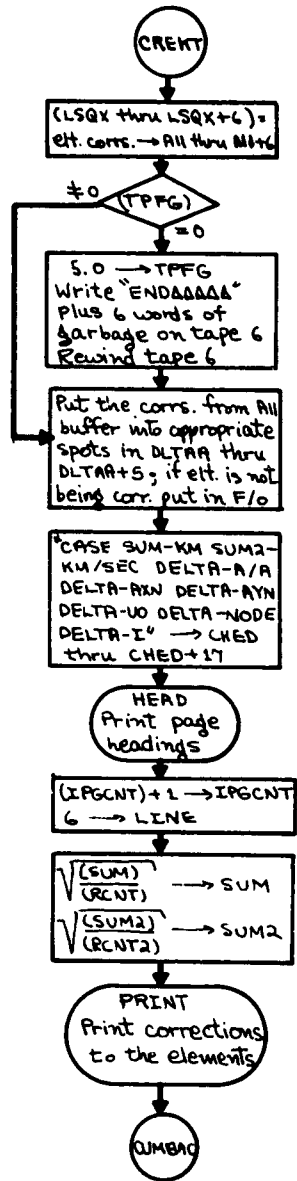 CREKT
(LSQX thru LSQX+6) =
elt. corrs. → A11 thru A11+6
≠0
(TPFG)
=0
5.0 → TPFG
Write "ENDΔΔΔΔΔ"
plus 6 words of
garbage on tape 6
Rewind tape 6
Put the corrs. from A11
buffer into appropriate
spots in DLTAA thru
DLTAA+5; if elt. is not
being corr. put in F/0
"CASE SUM-KM SUM2-
KM/SEC DELTA-A/A
DELTA-AXN DELTA-AYN
DELTA-UO DELTA-NODE
DELTA-I" → CHED
thru CHED+17
HEAD
Print page
headings
(IPGCNT)+1 → IPGCNT
6 → LINE
√(SUM)/(RCNT) → SUM
√(SUM2)/(RCNT2) → SUM2
PRINT
Print corrections
to the elements
OUMBAC